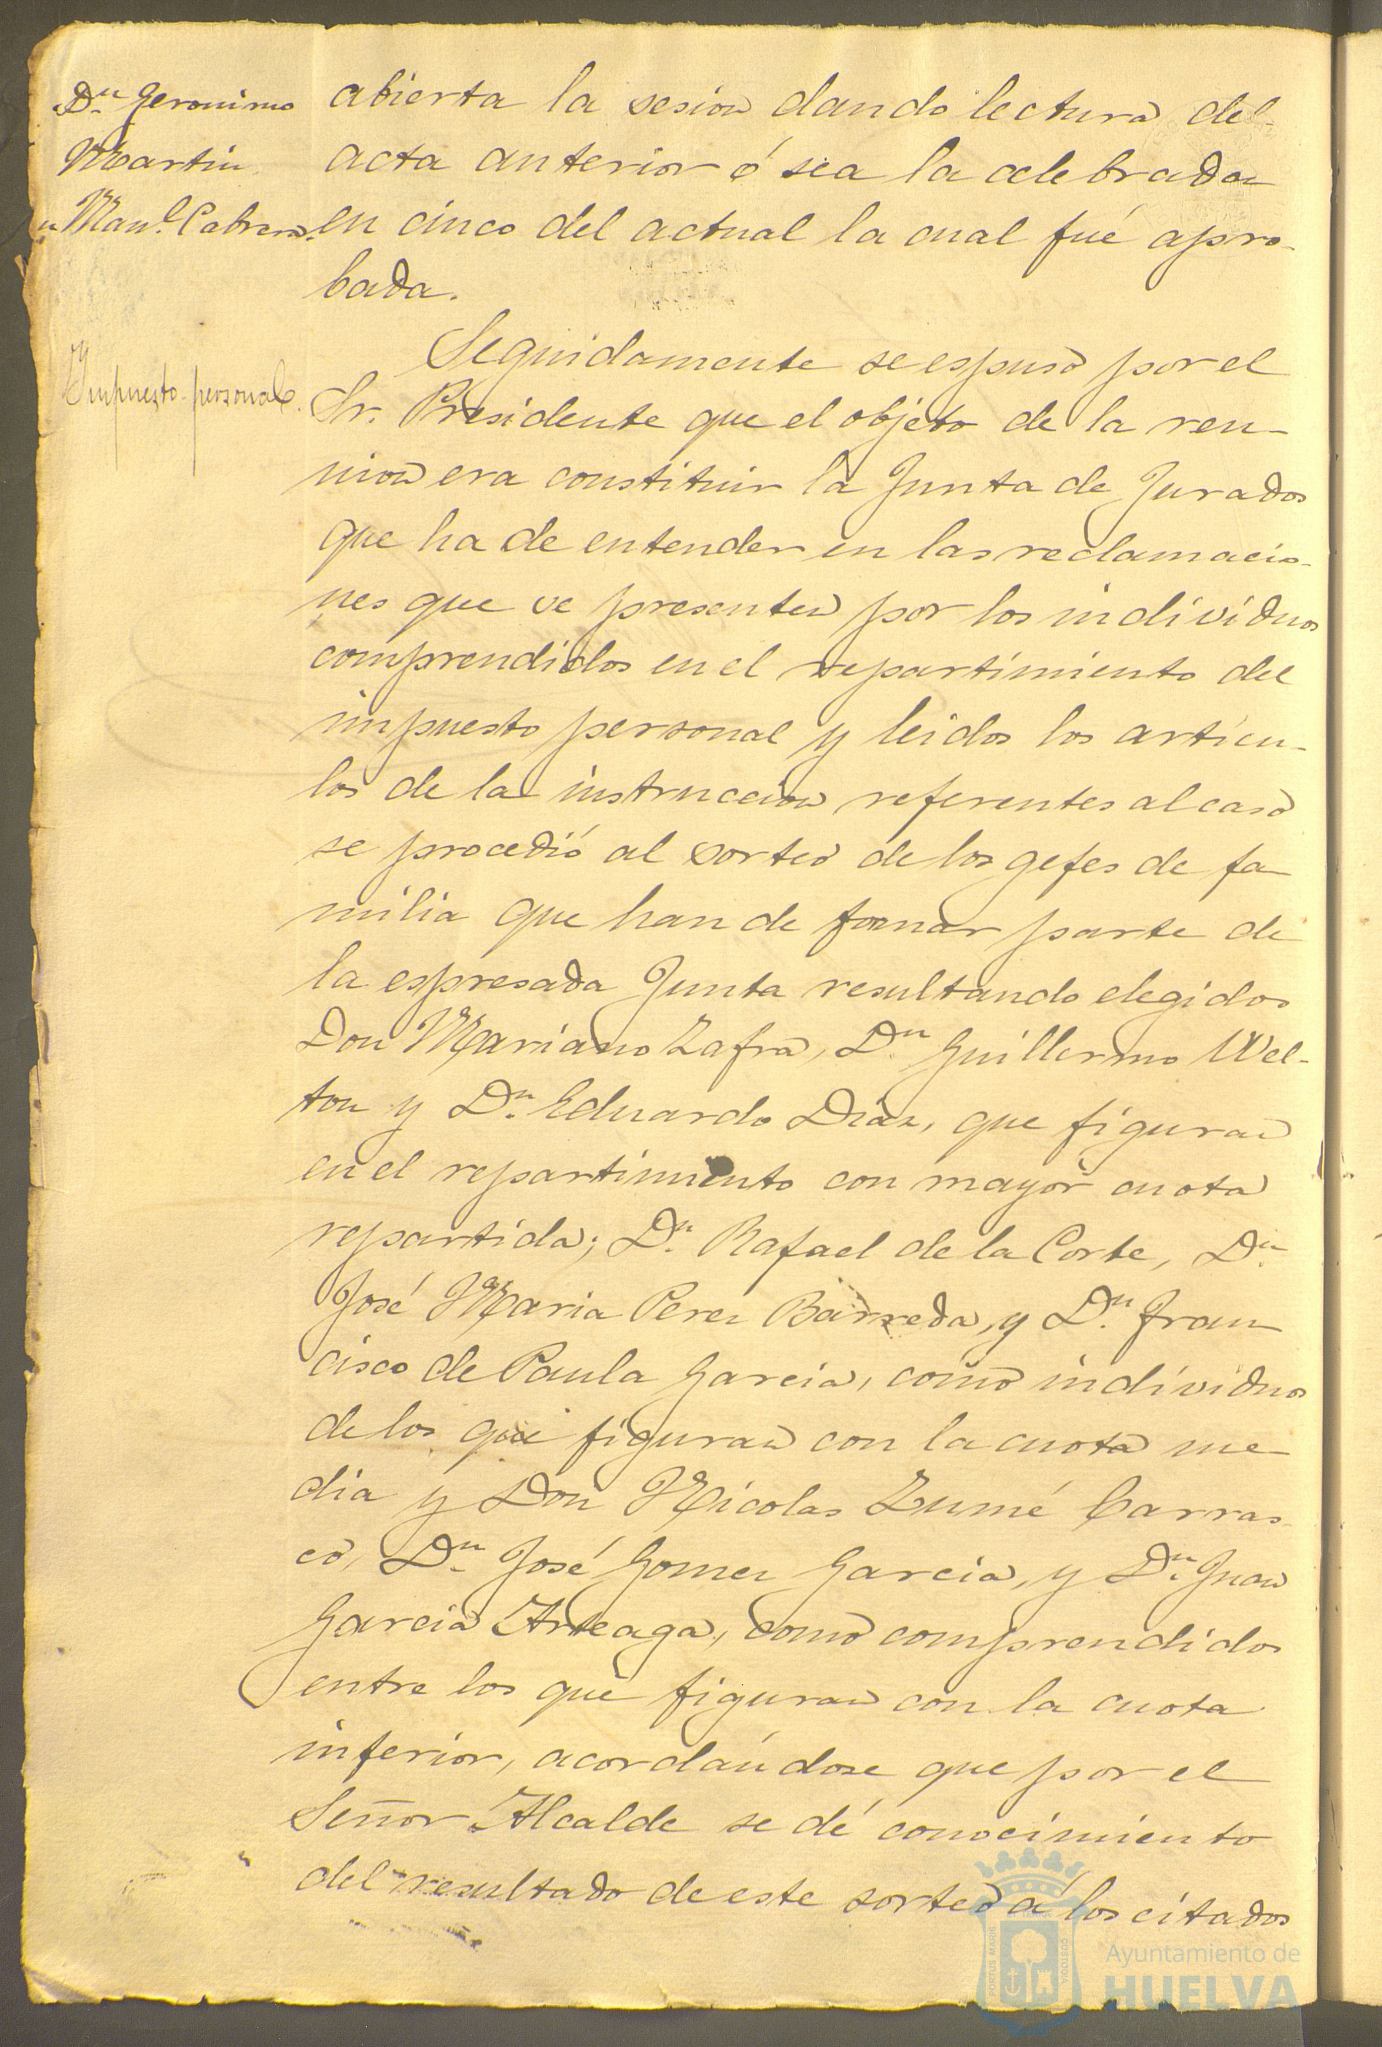 Dn. Geronimo
Martin
" Manl. Cabrera.
Impuesto personal.
abierta la sesion dando lectura del
acta anterior ó sea la celebrada
en cinco del actual la cual fué apro-
bada.
Seguidamente se espuso por el
Sr. Presidente que el objeto de la reu-
nion era constituir la Junta de Jurados
que ha de entender en las reclamacio-
nes que se presenten por los individuos
comprendidos en el repartimiento del
impuesto personal y leidos los artícu-
los de la instruccion referentes al caso
se procedió al sorteo de los gefes de fa-
milia que han de formar parte de
la espresada Junta resultando elegidos
Don Mariano Zafra, Dn. Guillermo Wel-
ton y Dn. Eduardo Diaz, que figuran
en el repartimiento con mayor cuota
repartida; Dn. Rafael de la Corte, Dn.
José Maria Perez Barreda, y Dn. Fran
cisco de Paula Garcia, como individuos
de los que figuran con la cuota me-
dia y Don Nicolas Zumé Carras-
co, Dn. José Gomez Garcia, y Dn. Juan
Garcia Arteaga, como comprendidos
entre los que figuran con la cuota
inferior, acordándose que por el
Señor Alcalde se dé conocimiento
del resultado de este sorteo á los citados
PORTUS MARIS
CUSTODIA
Ayuntamiento de
HUELVA